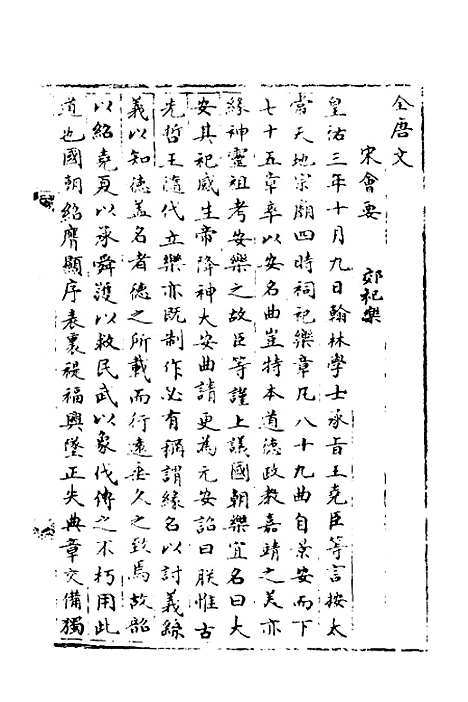 全唐文
宋會要
郊祀樂
皇祐三年十月九日翰林學士承旨王堯臣等言按太
常天地宗廟四時祠祀樂章凡八十九曲自景安而下
七十五章率以安名曲豈特本道德政教嘉靖之美亦
緣神靈祖考安樂之故臣等謹上議國朝樂宜名曰大
安其祀感生帝降神大安曲請更為元安詔曰朕惟古
先哲王隨代立樂亦既制作必有稱謂緣名以討義繇
義以知德蓋名者德之所載而行遠垂久之致焉故韶
以紹堯夏以承舜濩以救民武以象伐傳之不朽用此
道也國朝紹膺顯序表裏禔福興墜正失典章交備獨